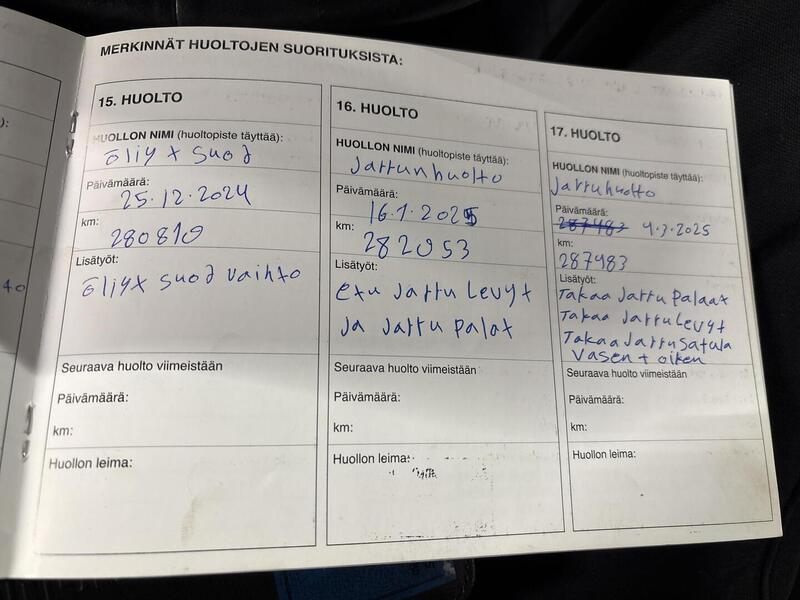 MERKINNÄT HUOLTOJEN SUORITUKSISTA:
15. HUOLTO
HUOLLON NIMI (huoltopiste täyttää):
öljyt suod
Päivämäärä:
25.12.2024
km:
280810
Lisätyöt:
öljyt suod vaihto
Seuraava huolto viimeistään
Päivämäärä:
km:
Huollon leima:
16. HUOLTO
HUOLLON NIMI (huoltopiste täyttää):
Jarrunhuolto
Päivämäärä:
16.1.2025
km:
282053
Lisätyöt:
etu Jarru Levyt
ja Jarru palat
Seuraava huolto viimeistään
Päivämäärä:
km:
Huollon leima:
17. HUOLTO
HUOLLON NIMI (huoltopiste täyttää):
Jarruhuolto
Päivämäärä:
287483 4.3.2025
km:
287483
Lisätyöt:
Takaa Jarru palaat
Takaa Jarru Levyt
Takaa Jarru Satula
Vasen + oiken
Seuraava huolto viimeistään
Päivämäärä:
km:
Huollon leima:
):
40